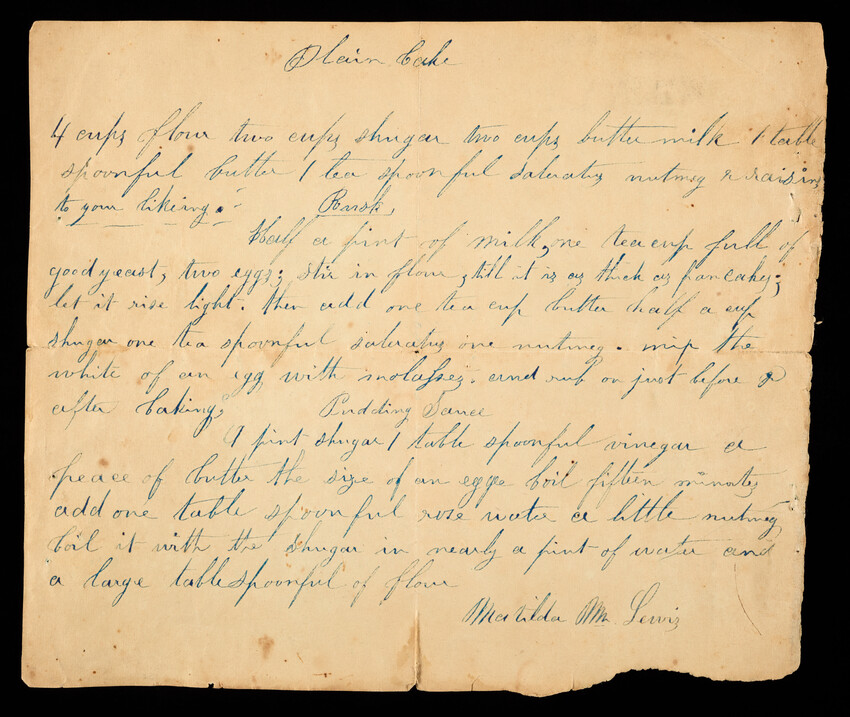 Plain Cake
4 cups flour two cups shugar two cups butter milk 1 table
spoonful butter 1 tea spoonful saleratus nutmeg & raisins
to your likeing. Rusk
Half a pint of milk, one teacup full of
good yeast, two eggs; stir in flour, till it is as thick as pancakes;
let it rise light. then add one tea cup butter half a cup
shugar one tea spoonful saleratus one nutmeg. mix the
white of an egg with molasses. and rub on just before &
after baking. Pudding Sauce
1 pint shugar 1 table spoonful vinegar a
peace of butter the size of an egge boil fifteen minutes
add one table spoonful rose water a little nutmeg
boil it with the shugar in nearly a pint of water and
a large tablespoonful of flour
Matilda Lewis